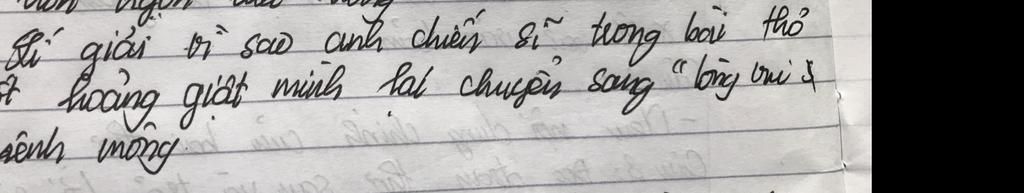 giải vì sao anh chiến sĩ trong bài thơ
hoảng giật mình lại chuyển sang "lòng vui s
mênh mông